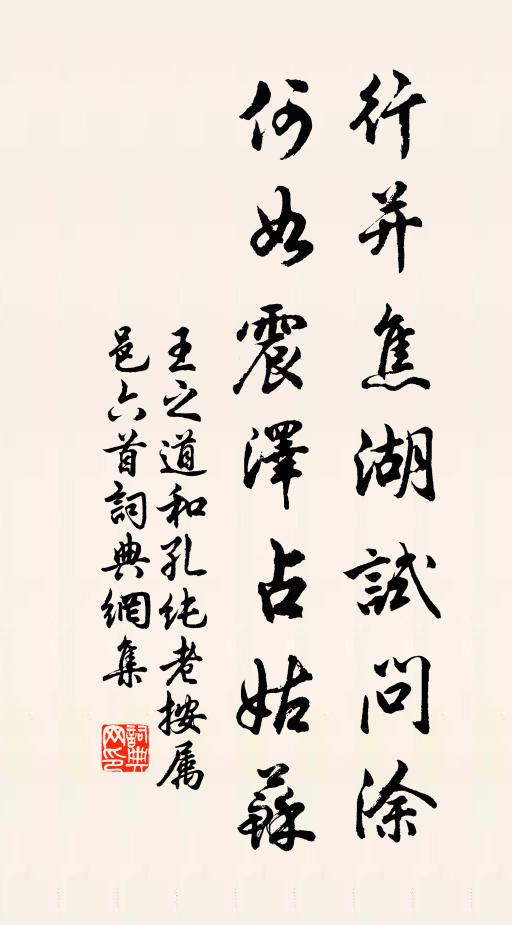 行并焦湖試問涂
何如震澤占姑蘇
王之道和孔純老按属
邑六首詞典網集
詞典网印